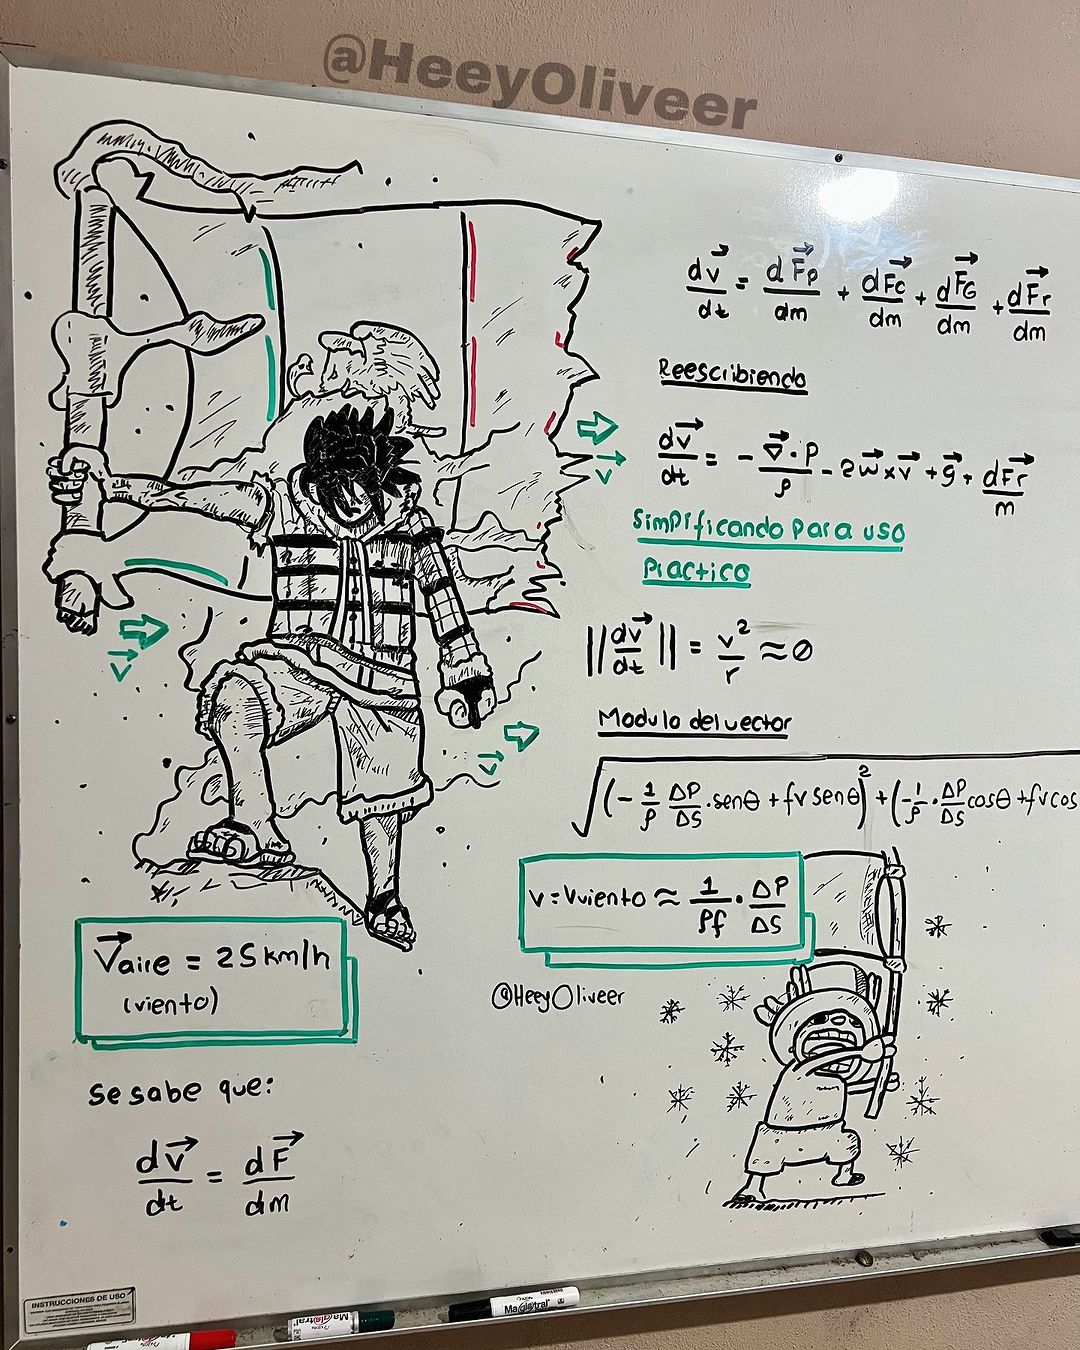 @HeeyOliveer
dv⃗/dt = dF⃗p/dm + dF⃗c/dm + dF⃗G/dm + dF⃗r/dm
Reescribiendo
dv⃗/dt = - ∇⃗·P/ρ - 2w⃗×v⃗ + g⃗ + dF⃗r/m
v⃗
Simplificando para uso
Practico
||dv⃗/dt|| = v²/r ≈ 0
v⃗
Modulo del vector
v⃗
√(- 1/ρ ΔP/ΔS · senθ + fv senθ)² + (- 1/ρ · ΔP/ΔS cosθ + fv cos
v = Vviento ≈ 1/ρf · ΔP/ΔS
V⃗aire = 25 km/h
(viento)
@HeeyOliveer
Se sabe que:
dv⃗/dt = dF⃗/dm
INSTRUCCIONES DE USO
Magistral
Magistral
Magistral